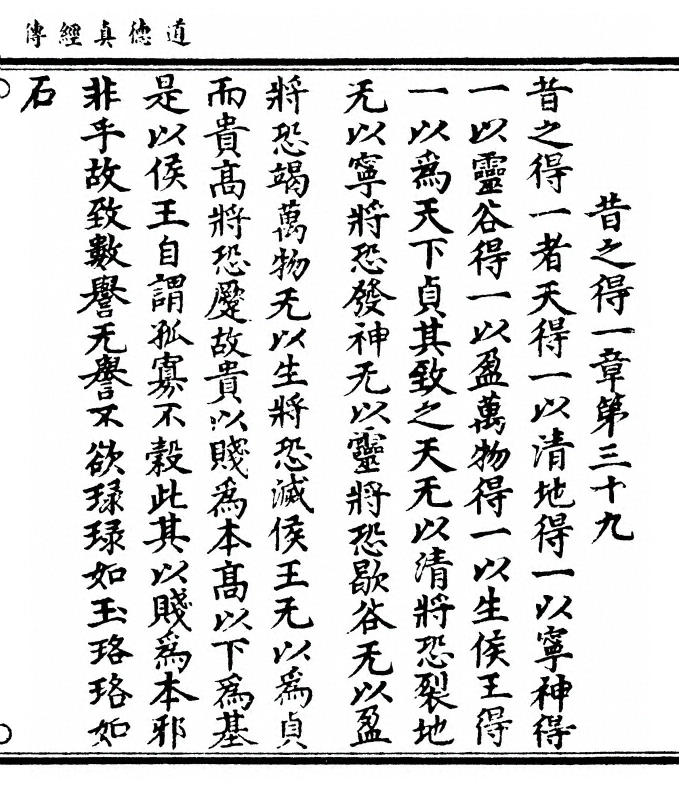 道德真經傳
昔之得一章第三十九
昔之得一者天得一以清地得一以寧神得
一以靈谷得一以盈萬物得一以生侯王得
一以為天下貞其致之天无以清將恐裂地
无以寧將恐發神无以靈將恐歇谷无以盈
將恐竭萬物无以生將恐滅侯王无以為貞
而貴高將恐蹷故貴以賤為本高以下為基
是以侯王自謂孤寡不穀此其以賤為本邪
非乎故致數譽无譽不欲琭琭如玉珞珞如
石